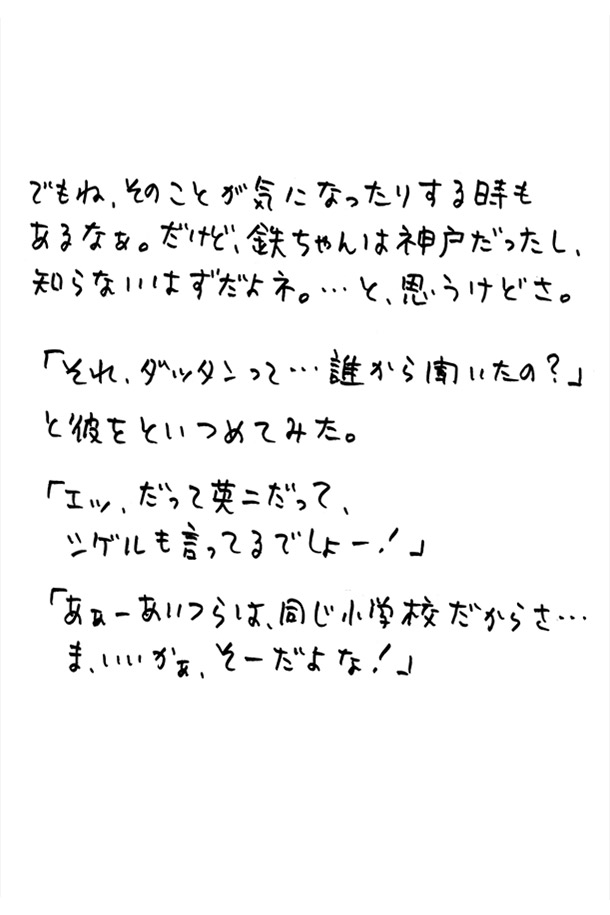 でもね、そのことが気になったりする時も
あるなぁ。だけど、鉄ちゃんは神戸だったし、
知らないはずだよネ。…と、思うけどさ。
「それ、ダッタンって…誰から聞いたの?」
と彼をといつめてみた。
「エッ、だって英二だって、
シゲルも言ってるでしょー!」
「あぁーあいつらは、同じ小学校だからさ…
ま、いいかぁ、そーだよな!」